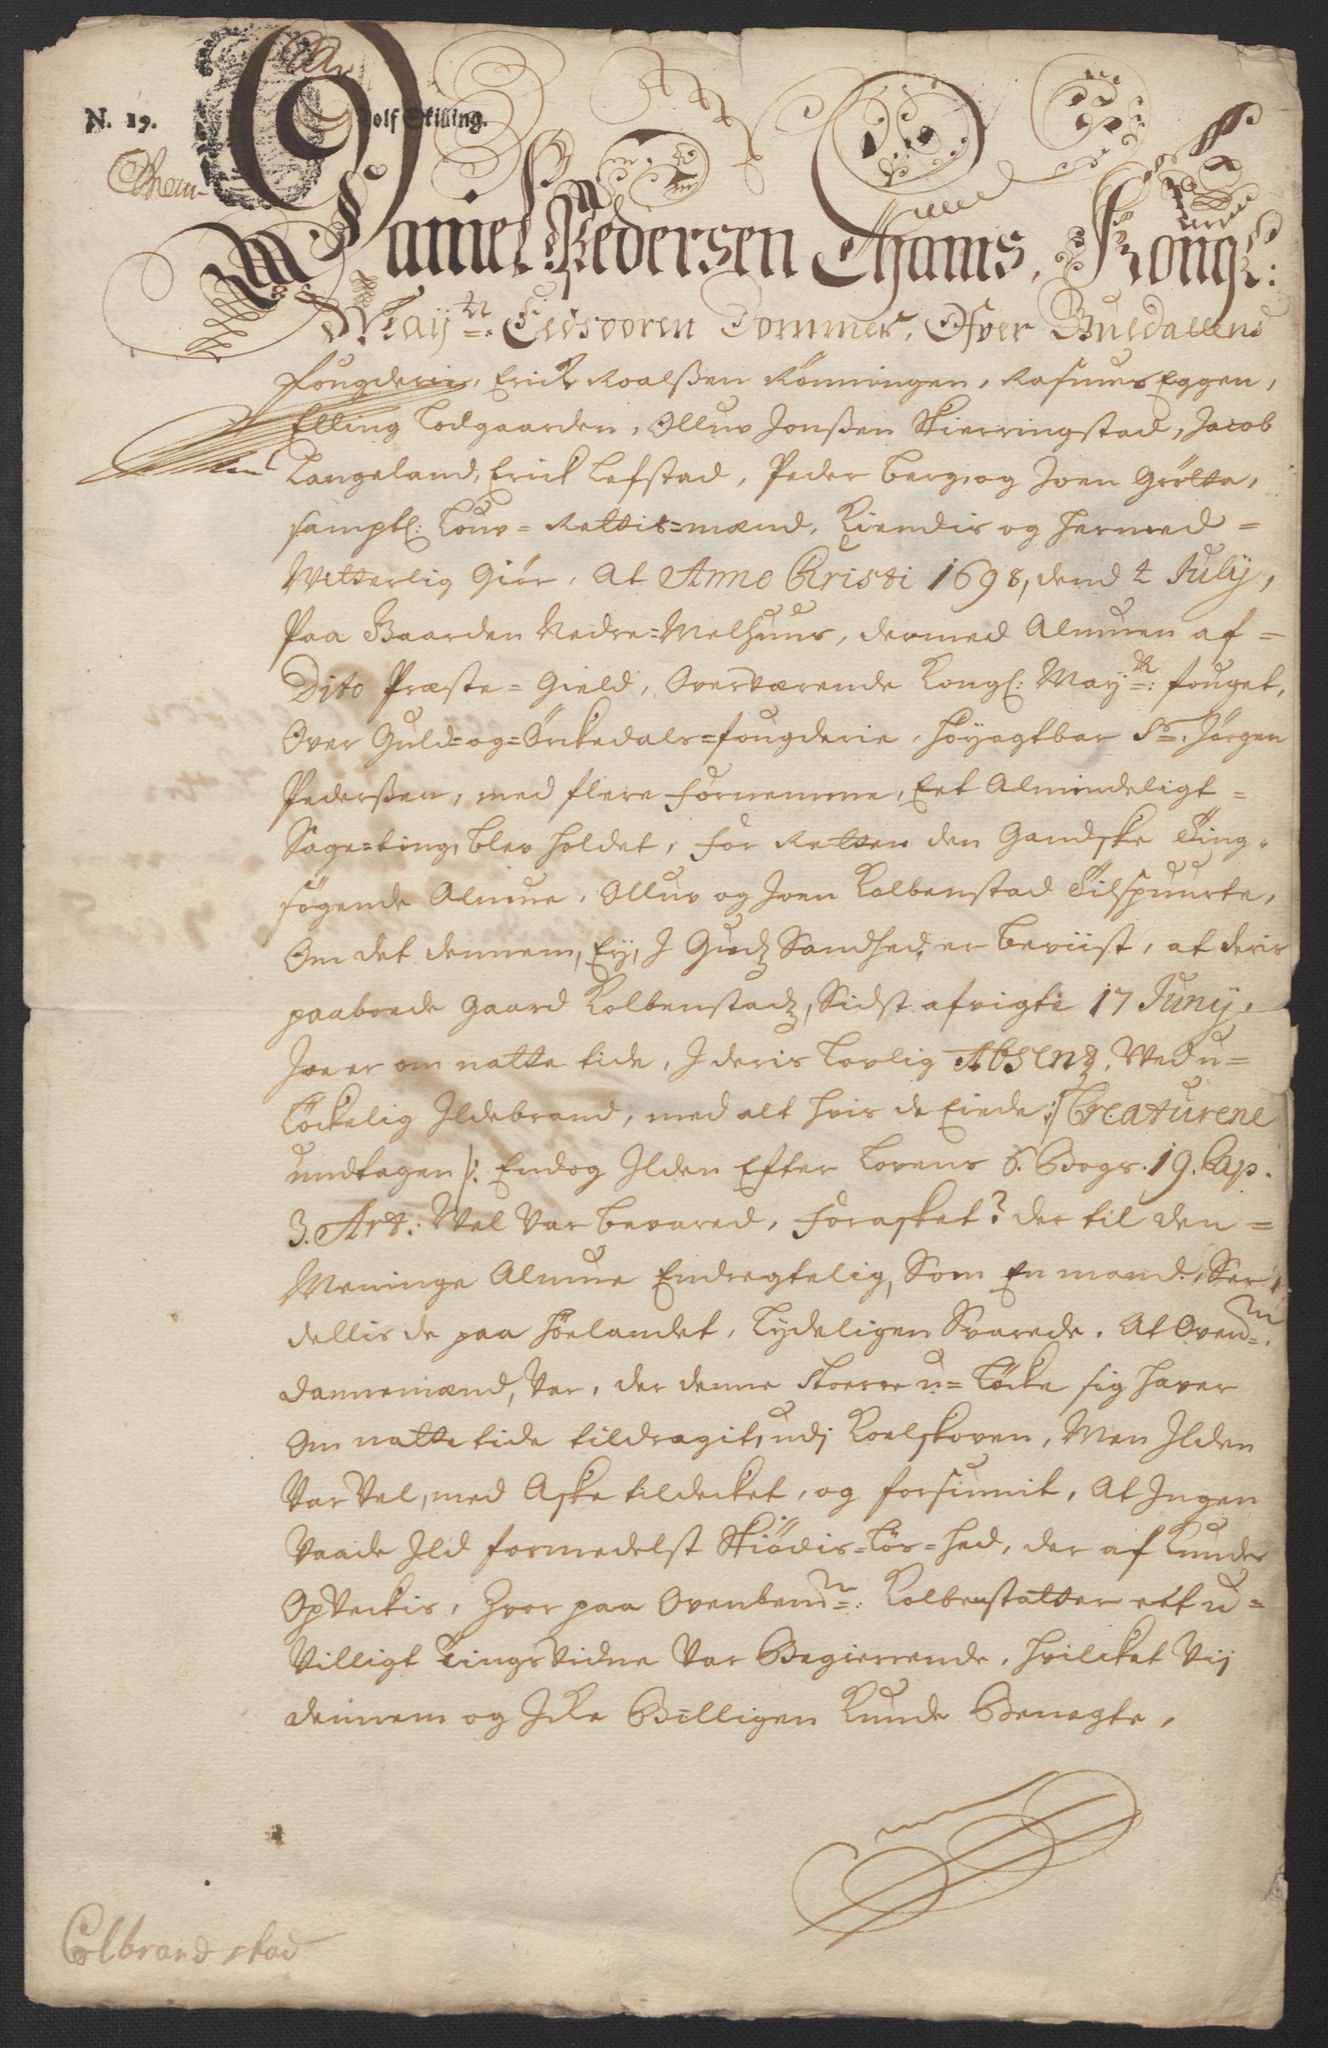 N. 19. Tolf Skilling.
Daniel Pedersen Thams, Kongl:
Mayts. Eedsvoren Dommer, Ofver Guldallens
fougderie, Erich Roalßen Rönningen, Rasmus Eggen,
Elling Lodgaarden, Olluv Jonßen Skierringstad, Jacob
Langeland, Erich Lefstad, Peder Berg, og Joen Grötta,
samptl: Louv-Rettis-mænd, Kiendis og hermed-
Vitterlig Giör, At Anno Christi 1698, dend 4 July,
Paa Gaarden Nedre-Melhuus, dermed Almuen af-
Dito Præste-Gield, Overværende Kongl: Mayts: fouget,
Over Guld-og-Örckedals-fougderie, höyagtbar Sr. Jörgen
Pederßen, med flere fornemme, Eet Almindeligt-
Sage-ting blev holdet, for Retten den Gandske Ting-
sögende Almue, Olluv og Joen Kolbenstad Tilspuurte,
Om det dennem, Ey, I Gudz Sandhed, er beviist, at deris
paaboende gaard Kolbenstadz, Sidst afvigte 17 Juny,
Joe er om natte tide, I deris lovlig Absentz, Ved u-
löckelig Ildebrand, med alt hvis de Eiede /: Creaturene
undtagen :/ Endog Ilden Efter Lovens 6. Bogs. 19. Cap.
3. Art: Vel Var bevared, forasket? der til den-
Meninge Almue Endregtelig, Som En mand, Ser
dellis de paa Höelandet, tydeligen Svarede, At Oven
dannemænd, Var, der denne Stoerre u-löcke sig haver
Om natte tide tildragit, udj Koelskoven, Men Ilden
Var Vel, med Aske tildecket, og forsiunit, At Ingen
Vaade Ild formedelst Skiödis-lös-hed, der af kunde
Opveckis, Hvor paa Ovenbente: Kolbenstatter ett u-
Villigt Tingsvidne Var Begierrende, hvilcket Vij
dennem og Icke Billigen Kunde Benegte,
Colbrandstad